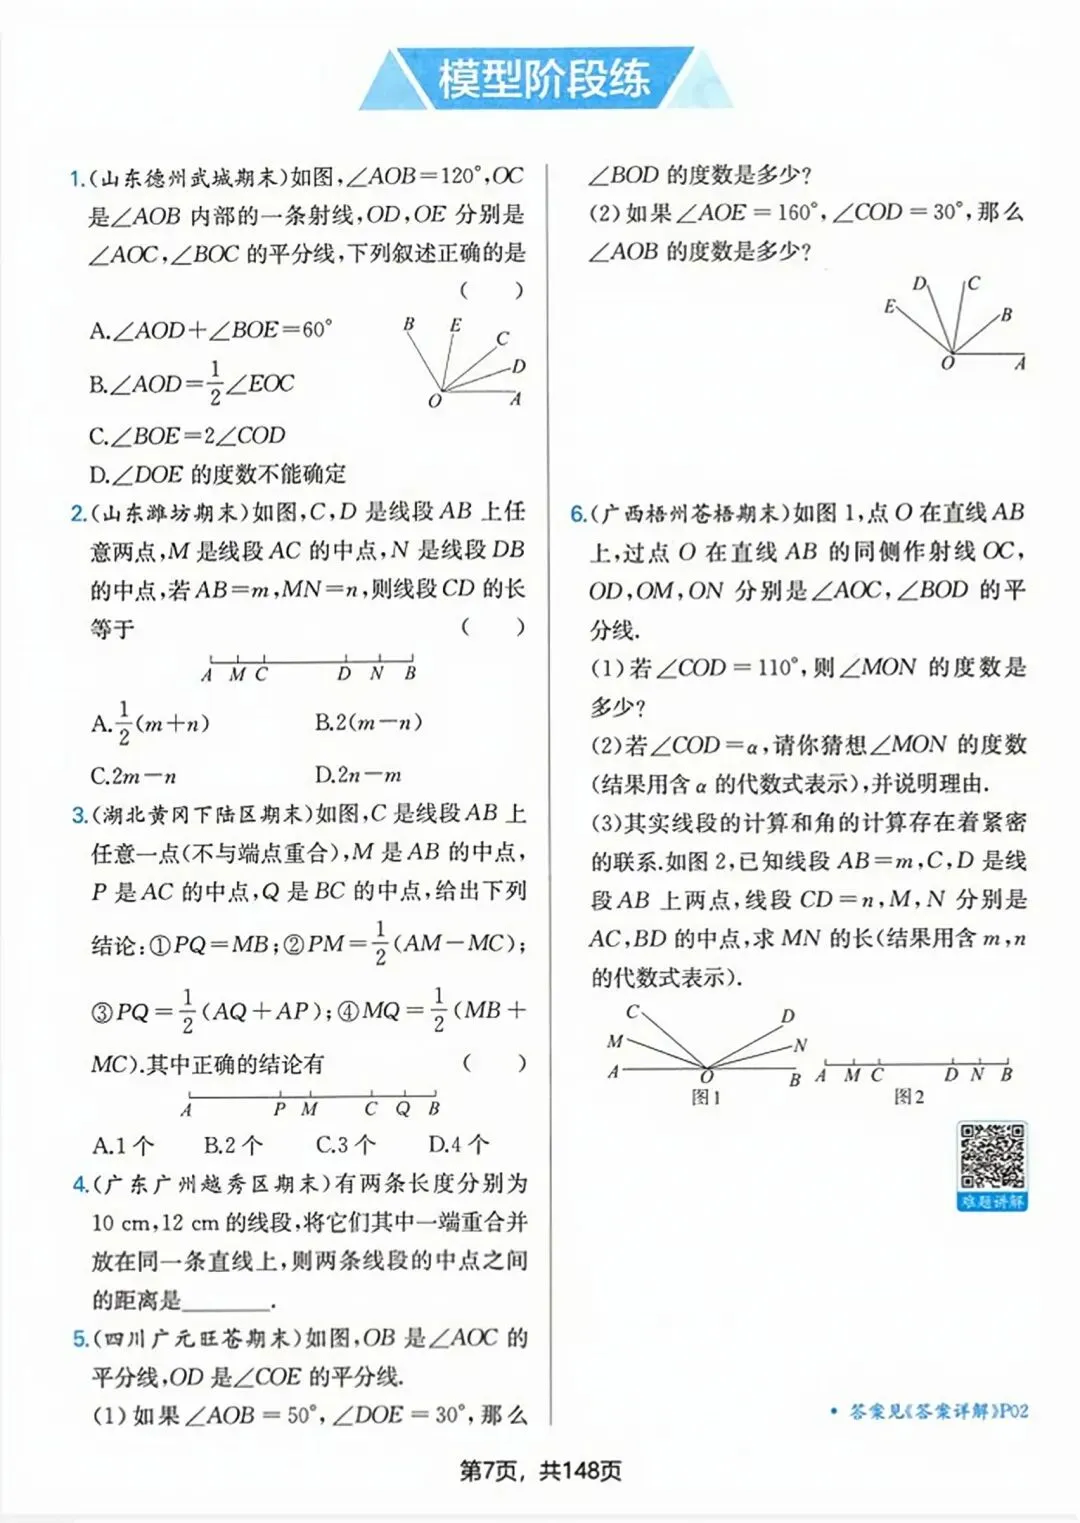 模型阶段练
1.(山东德州武城期末)如图,∠AOB=120°,OC
是∠AOB 内部的一条射线,OD,OE 分别是
∠AOC,∠BOC 的平分线,下列叙述正确的是
( )
A.∠AOD+∠BOE=60°
B.∠AOD=1/2∠EOC
C.∠BOE=2∠COD
D.∠DOE 的度数不能确定
B E C D O A
2.(山东潍坊期末)如图,C,D 是线段 AB 上任
意两点,M 是线段 AC 的中点,N 是线段 DB
的中点,若 AB=m,MN=n,则线段 CD 的长
等于 ( )
A M C D N B
A.1/2(m+n) B.2(m-n)
C.2m-n D.2n-m
3.(湖北黄冈下陆区期末)如图,C 是线段 AB 上
任意一点(不与端点重合),M 是 AB 的中点,
P 是 AC 的中点,Q 是 BC 的中点,给出下列
结论:①PQ=MB;②PM=1/2(AM-MC);
③PQ=1/2(AQ+AP);④MQ=1/2(MB+
MC).其中正确的结论有 ( )
A P M C Q B
A.1 个 B.2 个 C.3 个 D.4 个
4.(广东广州越秀区期末)有两条长度分别为
10 cm,12 cm 的线段,将它们其中一端重合并
放在同一条直线上,则两条线段的中点之间
的距离是________.
5.(四川广元旺苍期末)如图,OB 是∠AOC 的
平分线,OD 是∠COE 的平分线.
(1)如果∠AOB=50°,∠DOE=30°,那么
∠BOD 的度数是多少?
(2)如果∠AOE=160°,∠COD=30°,那么
∠AOB 的度数是多少?
D C E B O A
6.(广西梧州苍梧期末)如图 1,点 O 在直线 AB
上,过点 O 在直线 AB 的同侧作射线 OC,
OD,OM,ON 分别是∠AOC,∠BOD 的平
分线.
(1)若∠COD=110°,则∠MON 的度数是
多少?
(2)若∠COD=α,请你猜想∠MON 的度数
(结果用含 α 的代数式表示),并说明理由.
(3)其实线段的计算和角的计算存在着紧密
的联系.如图 2,已知线段 AB=m,C,D 是线
段 AB 上两点,线段 CD=n,M,N 分别是
AC,BD 的中点,求 MN 的长(结果用含 m,n
的代数式表示).
C D M N A O B
图1
A M C D N B
图2
难题讲解
• 答案见《答案详解》P02
第7页，共148页